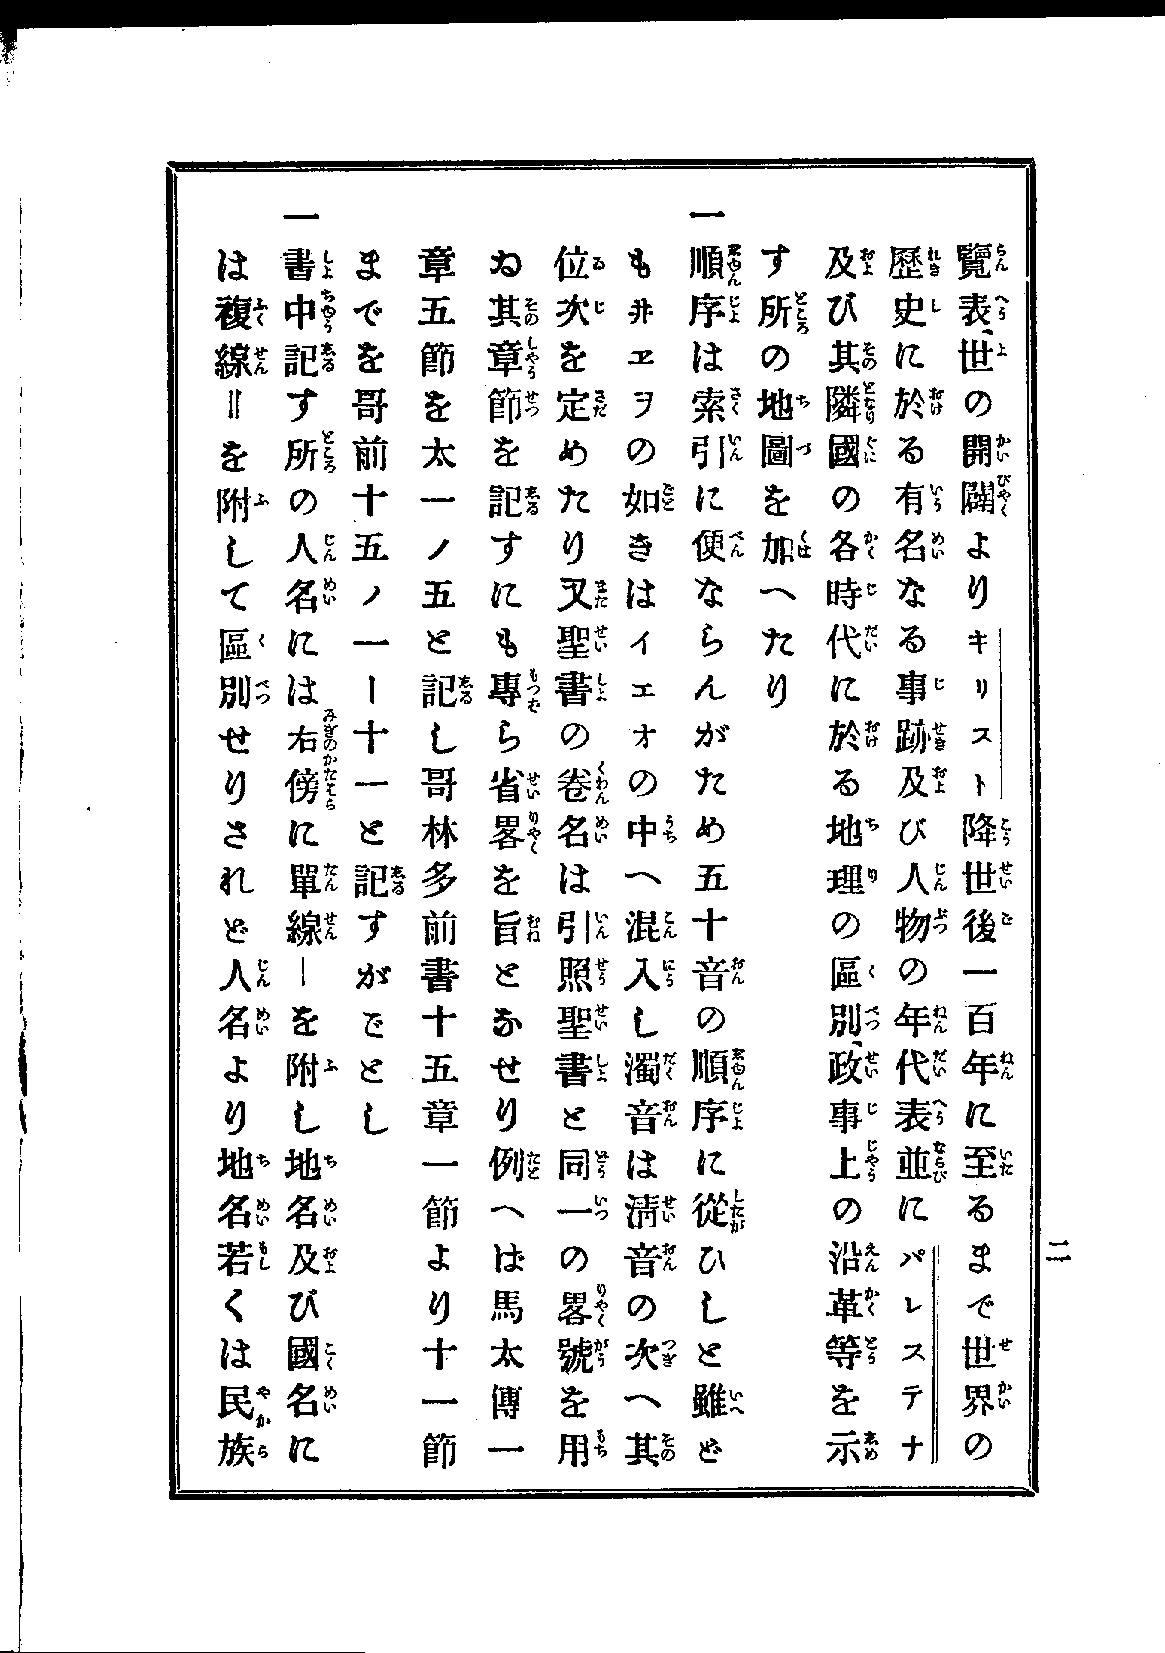 覽表、世の開闢よりキリスト降世後一百年に至るまで世界の
歷史に於る有名なる事跡及び人物の年代表並にパレステナ
及び其隣國の各時代に於る地理の區別、政事上の沿革等を示
す所の地圖を加へたり
一 順序は索引に便ならんがため五十音の順序に從ひしと雖ど
もヰヱヲの如きはイエオの中へ混入し濁音は淸音の次へ其
位次を定めたり又聖書の卷名は引照聖書と同一の畧號を用
ゐ其章節を記すにも專ら省畧を旨となせり例へば馬太傳一
章五節を太一ノ五と記し哥林多前書十五章一節より十一節
までを哥前十五ノ一ー十一と記すがごとし
一 書中記す所の人名には右傍に單線ーを附し地名及び國名に
は複線॥を附して區別せりされど人名より地名若くは民族
二